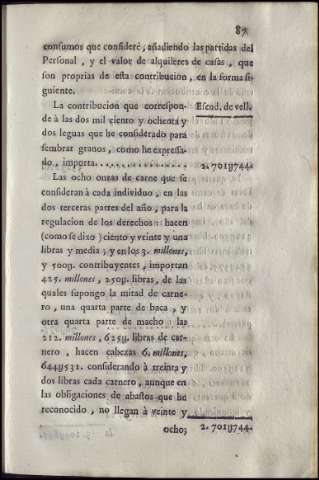 87
consumos que consideré, añadiendo las partidas del
Personal, y el valor de alquileres de casas, que
son proprias de esta contribucion, en la forma si-
guiente.
La contribucion que correspon- Escud. de vell.
de à las dos mil ciento y ochenta y
dos leguas que he considerado para
sembrar granos, como he expressa-
do, importa................ 2.701y744.
Las ocho onzas de carne que se
consideran à cada individuo, en las
dos terceras partes del año, para la
regulacion de los derechos hacen
(como se dixo) ciento y veinte y una
libras y media; y en los 3. millones,
y 500y. contribuyentes, importan
425. millones, 250y. libras, de las
quales supongo la mitad de carne-
ro, una quarta parte de baca, y
otra quarta parte de macho: las
212. millones, 625y. libras de car-
nero, hacen cabezas 6. millones,
644y531. considerando à treinta y
dos libras cada carnero, aunque en
las obligaciones de abastos que he
reconocido, no llegan à veinte y
ocho; 2.701y744.